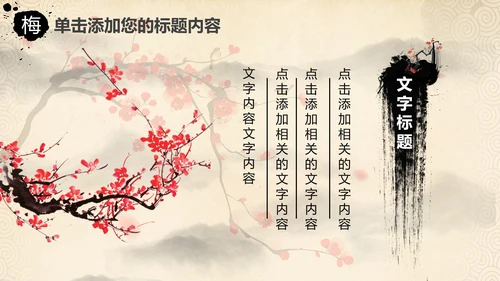 梅
单击添加您的标题内容
文字标题
点击添加相关的文字内容
点击添加相关的文字内容
点击添加相关的文字内容
文字内容文字内容